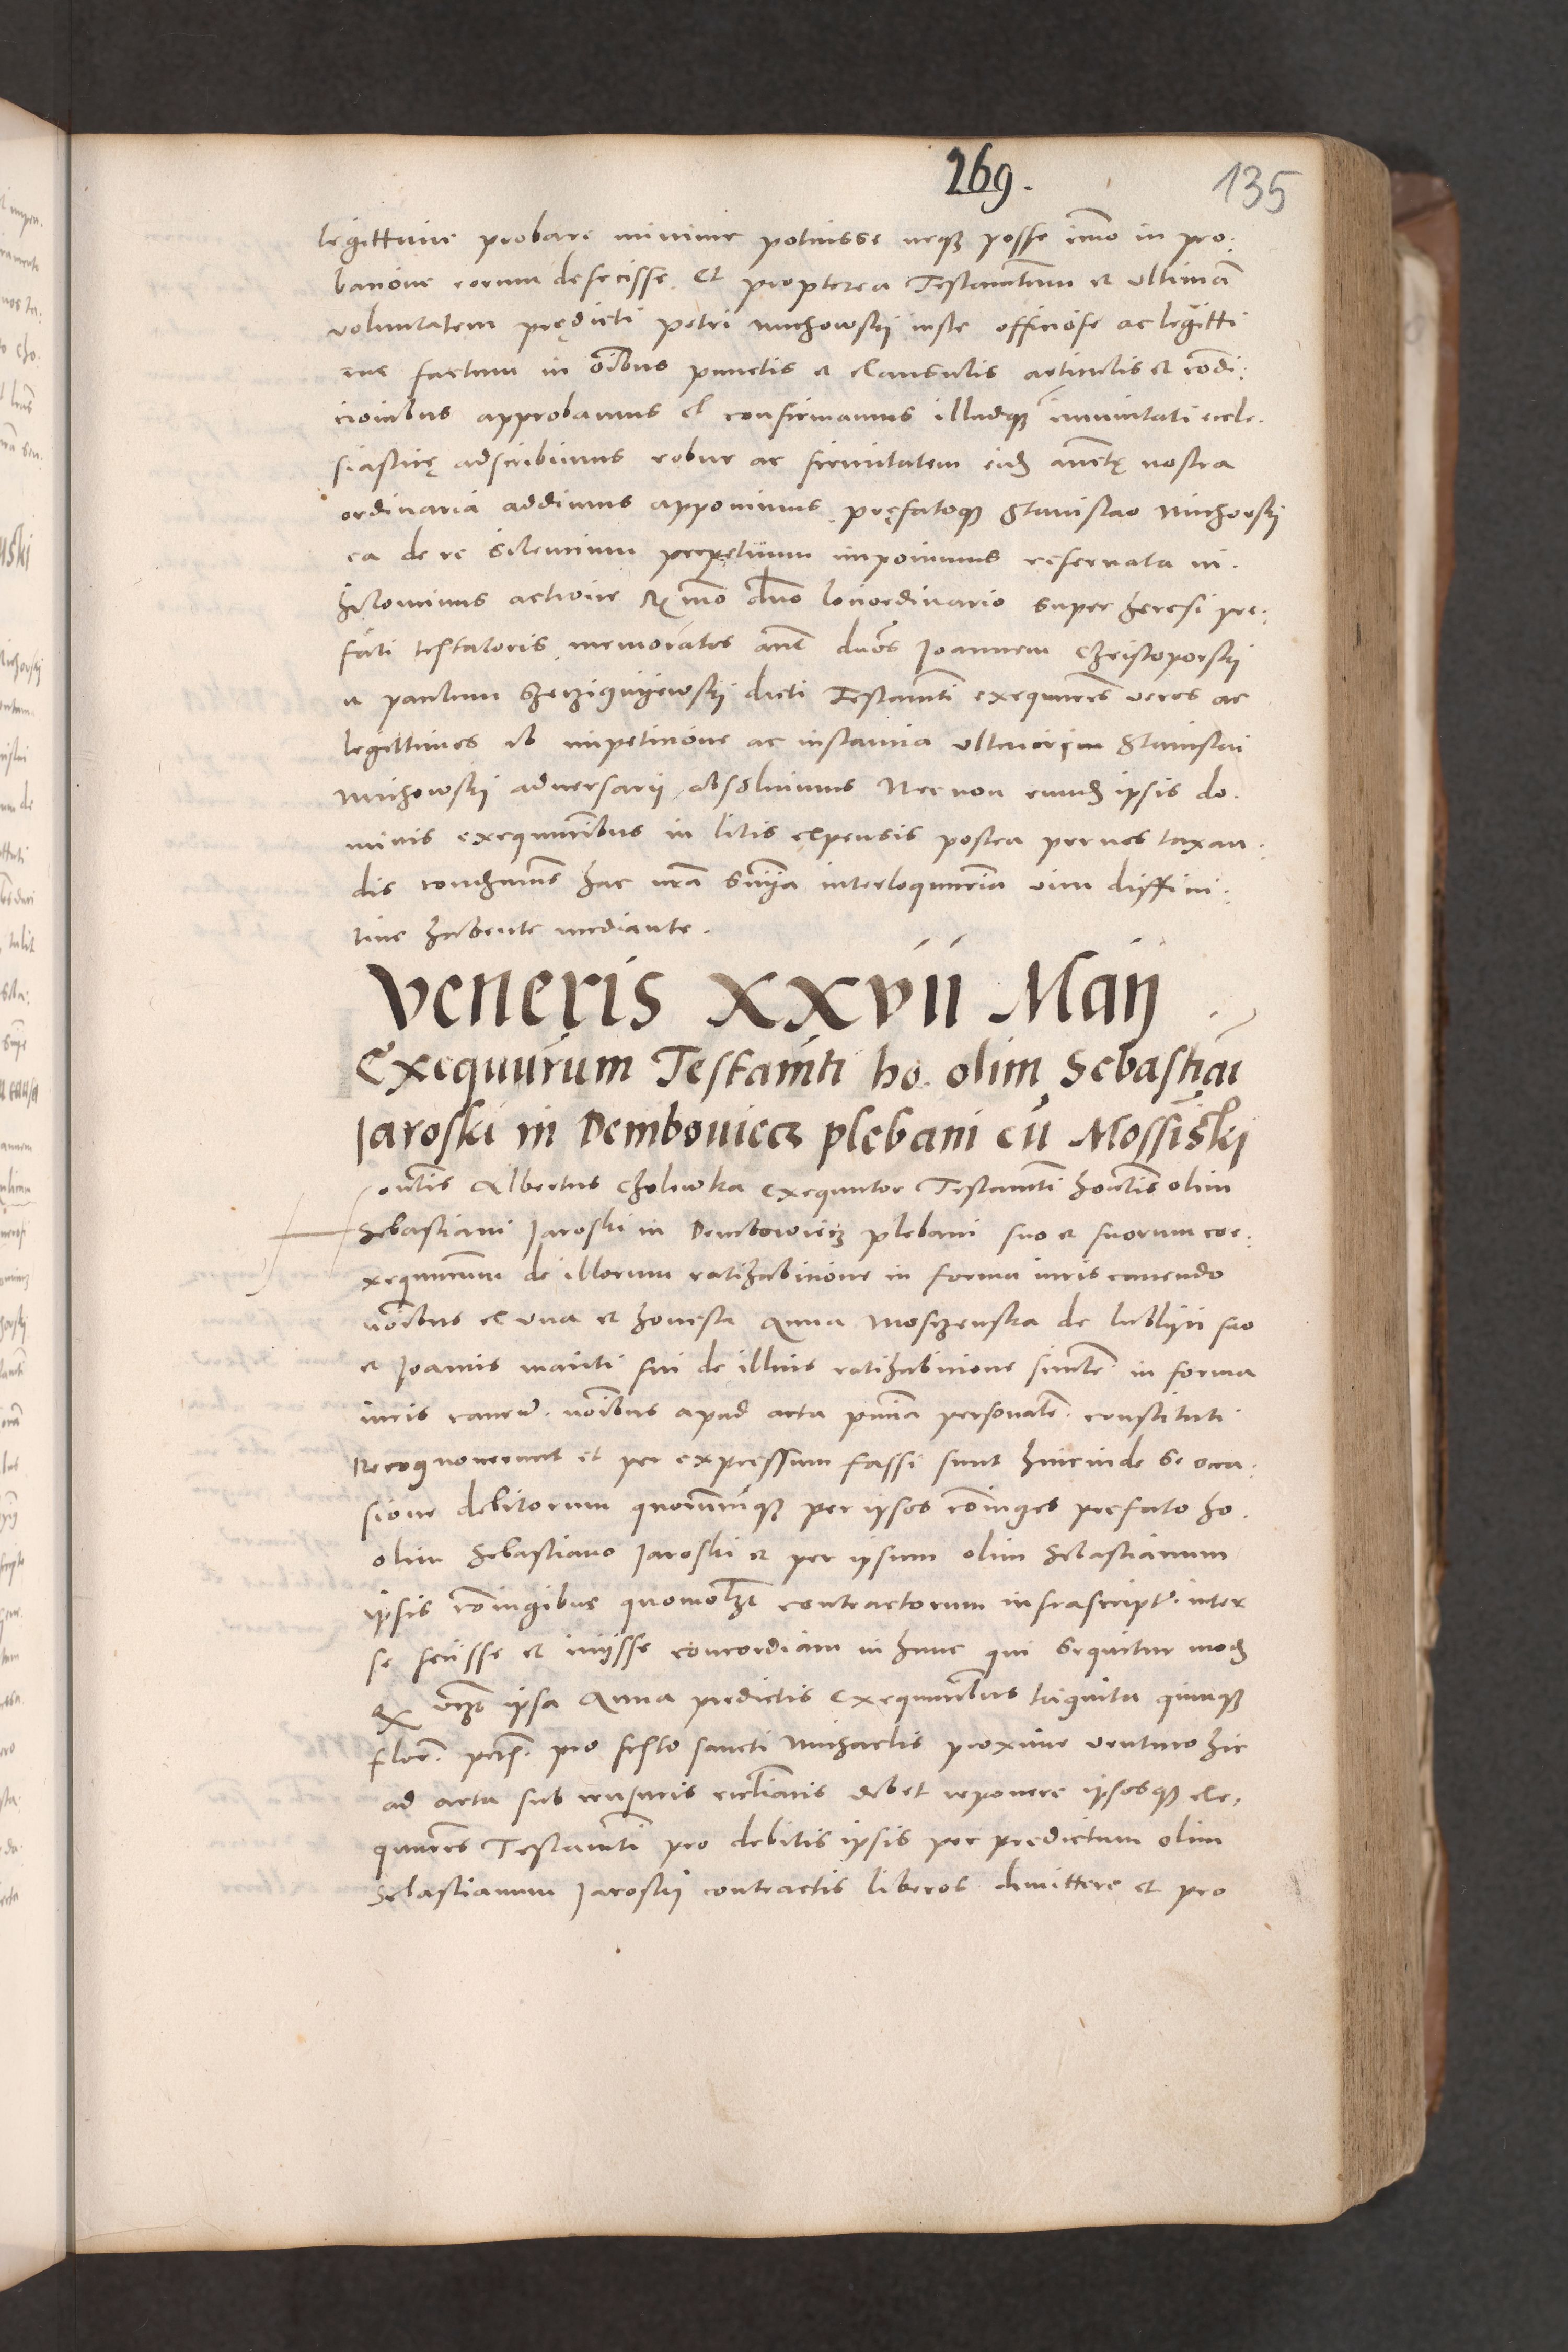 269.
135
legittime probare minime potuisse neqz posse imo in pro:
bacione eorum defecisse. Et propterea Testamentum et ultimā
voluntatem prędicti petri Michowskij iuste officiose ac legitti
me factum in oībus punctis et clausulis articulis et condi:
cionibus approbamus et confirmamus illudqz immunitati eccle.
siasticę adscribimus robur ac firmitatem eidē autē nostra
ordinaria addimus apponimus. pręfatoqz Stanislao Michowskij
ea de re silencium perpetuum imponimus reservata ni.
hilominus actione Rmo dno loci ordinario super heresi pre:
fati testatoris memoratos aūt duos Ioannem Christoporskij
et paulum dicti Testamti exequutores veros ac
legittimos ab impeticione ac instancia Stanislai
Michowskij adversarij absolvimus Nec non eundē ipsis do.
minis exequutoribus in litis expensis postea per nos taxan:
dis condemnamus hac nrā snīa interloquutoria vim diffini:
tive habente mediante.
Veneris XXVII Maij
Exequutorum Testamti ho. olim Sebastiani
Iaroski in Dembowiecz plebani cū Mossinski
Albertus Cholewka exequutor Testamti olim
Sebastiani Iaroski in Dembowiecz plebani suo et suorum coe:
xequutorum de illorum ratihabicione in forma iuris cavendo
noībus ex una et honesta Anna Moszczenska de Lublijn suo
et Ioannis mariti sui de illius ratihabicione in forma
iuris cavend. noībus apud acta personalr. constituti
Recognoverunt et per expressum fassi sunt hincinde se occa:
sione debitorum quorumcunqz per ipsos coniuges prefato ho.
olim Sebastiano Iaroski et per ipsum olim Sebastianum
ipsis coniugibus quomolt contractorum infrascript. inter
se fecisse et inijsse concordiam in hunc qui sequitur modū
Qz ipsa Anna predictis exequutoribus triginta quinqz
flor. pro festo sancti Michaelis proxime venturo hic
ad acta sub censuris debet reponere ipsosqz exe:
quutores Testamti pro debitis ipsis per predictum olim
Sebastianum Iaroskij contractis liberos dimittere et pro